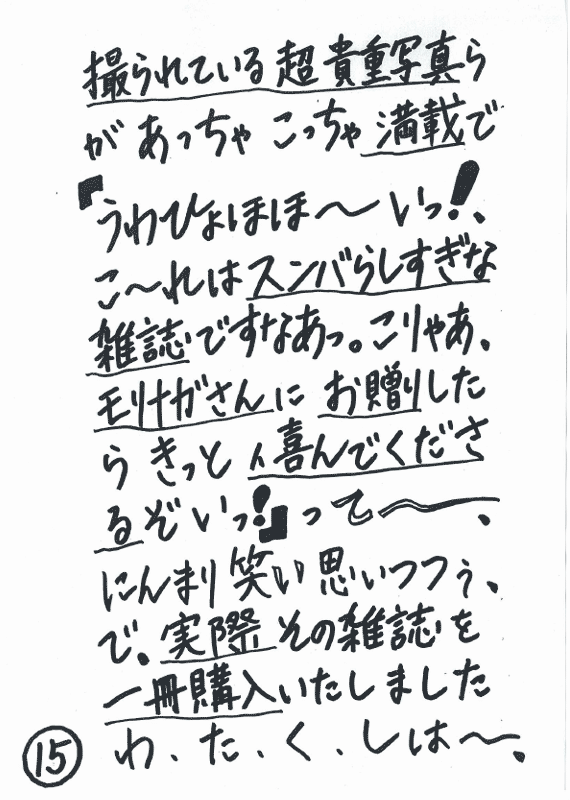 撮られている超貴重写真ら
があっちゃこっちゃ満載で
『うわひょほほ〜いっ!、
こ〜れはスンバらしすぎな
雑誌ですなあっ。こりゃあ、
モリナガさんにお贈りした
らきっと喜んでくださ
るぞいっ!』って〜、
にんまり笑い思いつつぅ、
で。実際その雑誌を
一冊購入いたしました
わ、た、く、しは〜。
15